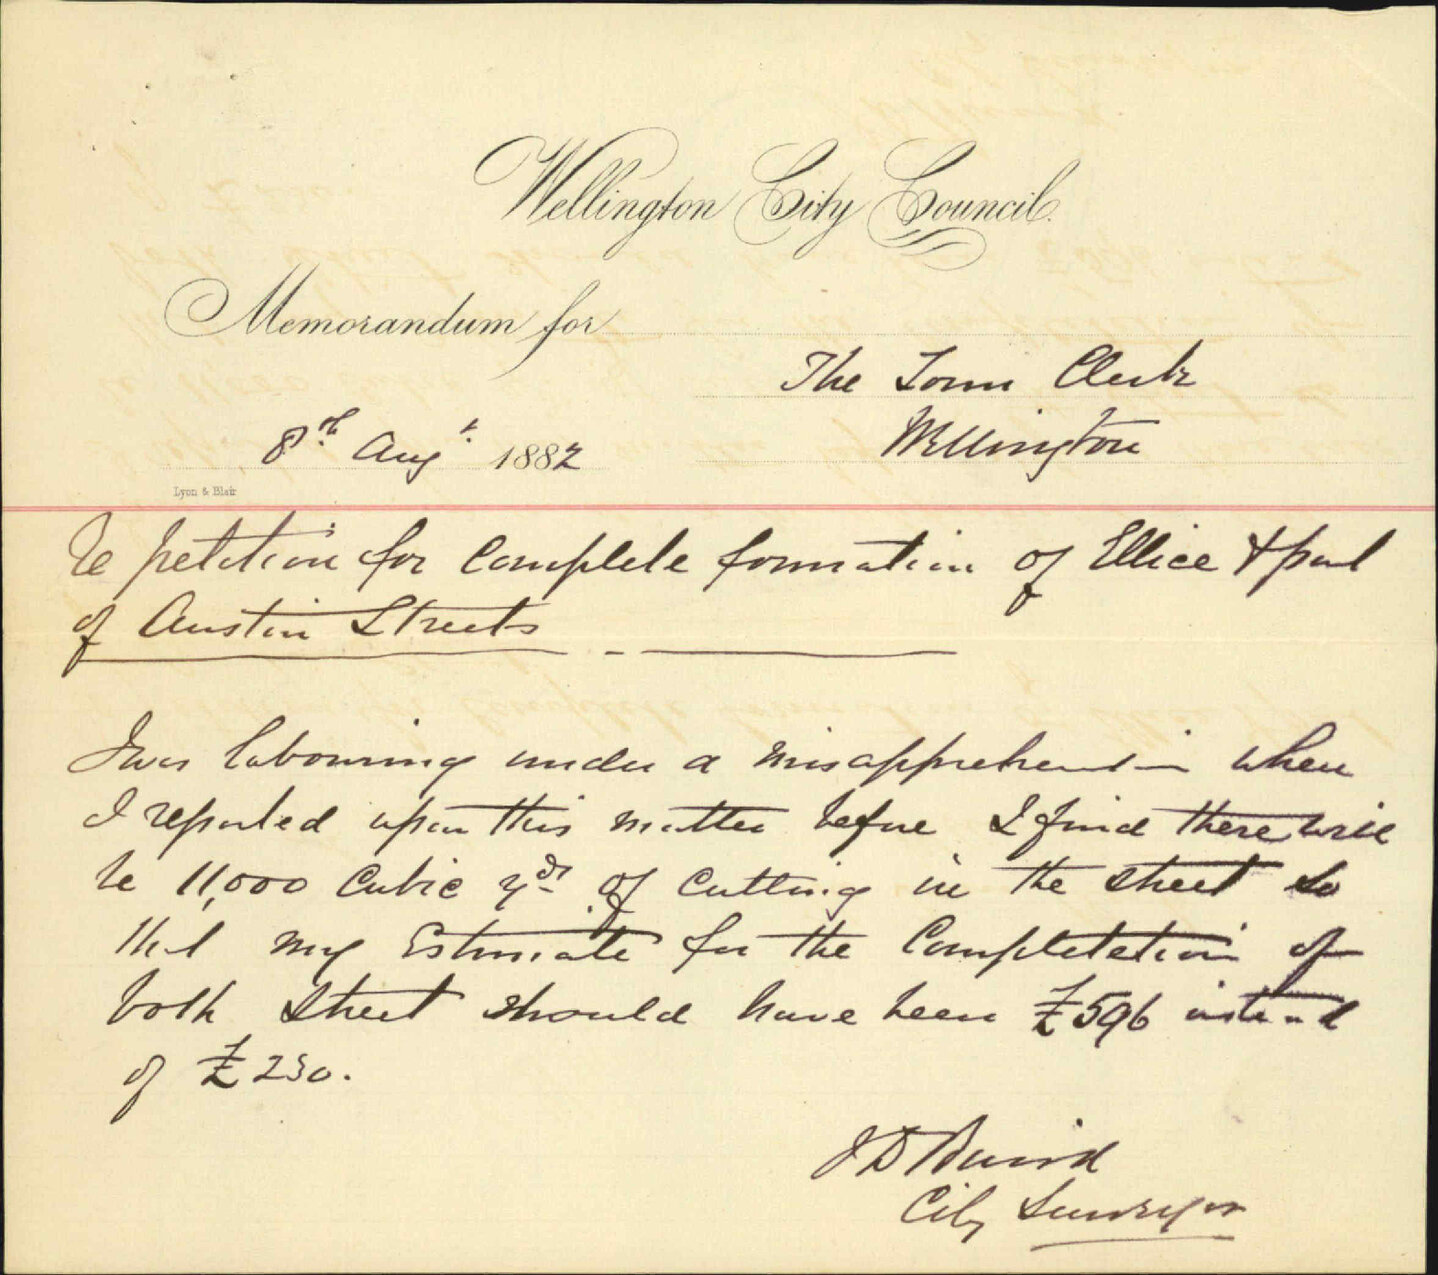 Wellington City Council.
Memorandum for
The Town Clerk
Wellington
8th Augt. 1882
Lyon & Blair
Re petition for Complete formation of Ellice & part
of Austin Streets
I was labouring under a misapprehension when
I reported upon this matter before I find there will
be 11,000 Cubic yds of Cutting in the street so
that my Estimate for the Completetion of
both Street should have been £596 instead
of £230.
J D Baird
City Surveyor